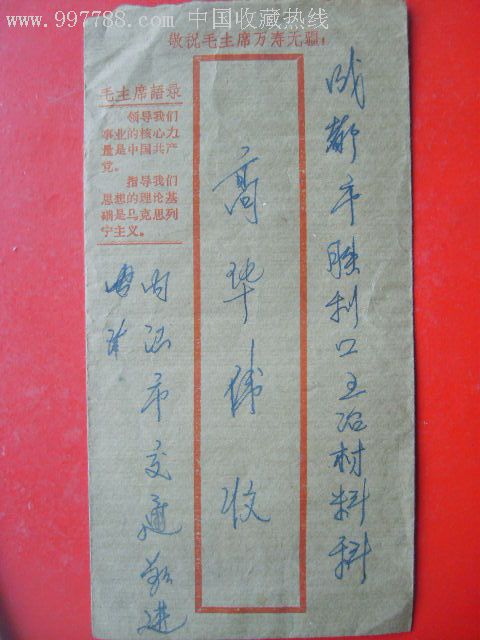 www.997788.com 中国收藏热线
敬祝毛主席万寿无疆!
毛主席語录
领导我们
事业的核心力
量是中国共产
党。
指导我们
思想的理论基
础是马克思列
宁主义。
成都市胜利口五冶材料科
高华伟收
内江市交通